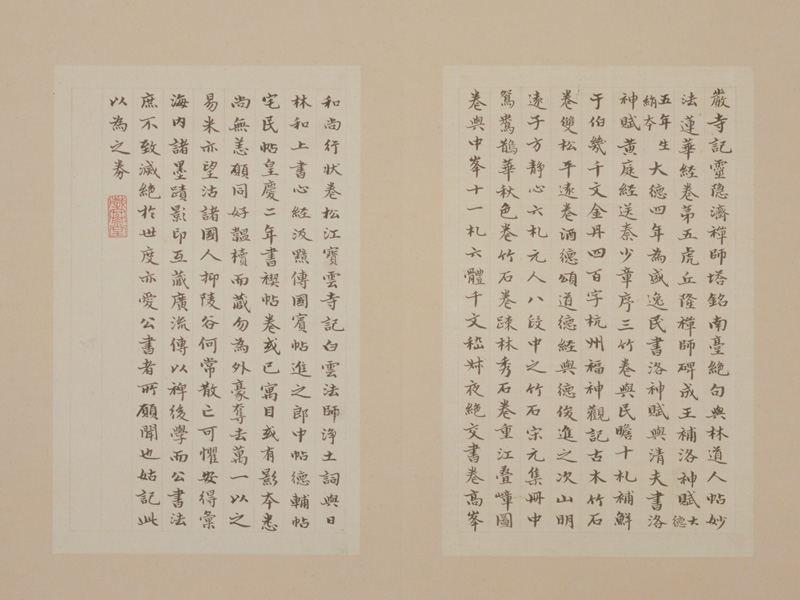 嚴寺記靈隱濟禪師塔銘南臺絕句與林道人帖妙
法蓮華經卷第五虎丘隆禪師碑成王補洛神賦大德
五年生絹本大德四年為盛逸民書洛神賦與清夫書洛
神賦黃庭經送秦少章序三竹卷與民瞻十札補鮮
于伯幾千文金丹四百字杭州福神觀記古木竹石
卷雙松平遠卷酒德頌道德經與德俊進之次山明
遠子方靜心六札元人八段中之竹石宋元集冊中
鴛鴦鵲華秋色卷竹石卷疎林秀石卷重江叠嶂圖
卷與中峯十一札六體千文嵇叔夜絕交書卷高峯
和尚行狀卷松江寶雲寺記白雲法師淨土詞與日
林和上書心經汲黯傳國賓帖進之郎中帖德輔帖
宅民帖皇慶二年書禊帖卷或已寓目或有影本悉
尚無恙願同好韞櫝而藏勿為外豪奪去萬一以之
易米亦望沽諸國人抑陵谷何常散亡可懼安得彙
海內諸墨蹟影印互藏廣流傳以裨後學而公書法
庶不致滅絕於世度亦愛公書者所願聞也姑記此
以為之券